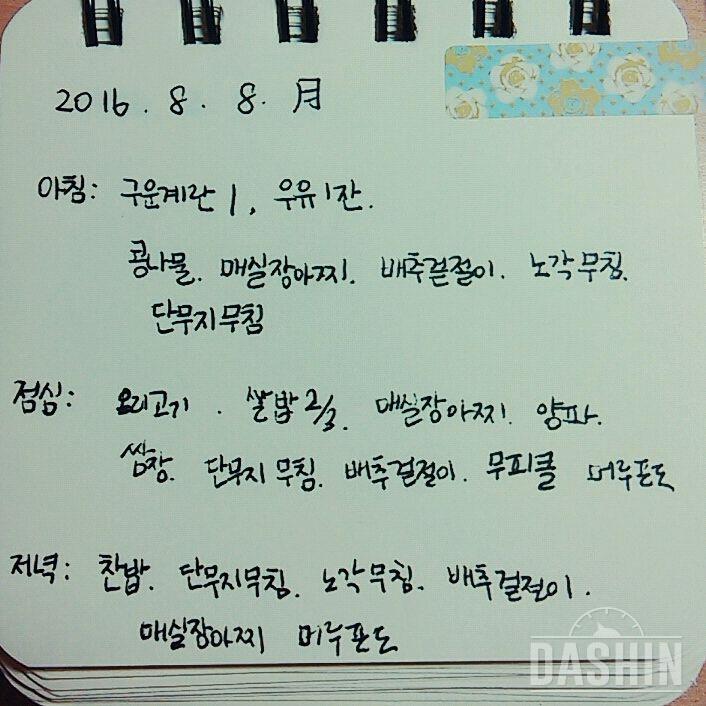 2016. 8. 8. 月
아침: 구운계란 1, 우유 1잔.
콩나물. 매실장아찌. 배추겉절이. 노각무침.
단무지무침
점심: 오리고기. 쌀밥 2/3. 매실장아찌. 양파.
쌈장. 단무지무침. 배추겉절이. 무피클 머루포도
저녁: 찬밥. 단무지무침. 노각무침. 배추겉절이.
매실장아찌 머루포도
DASHIN